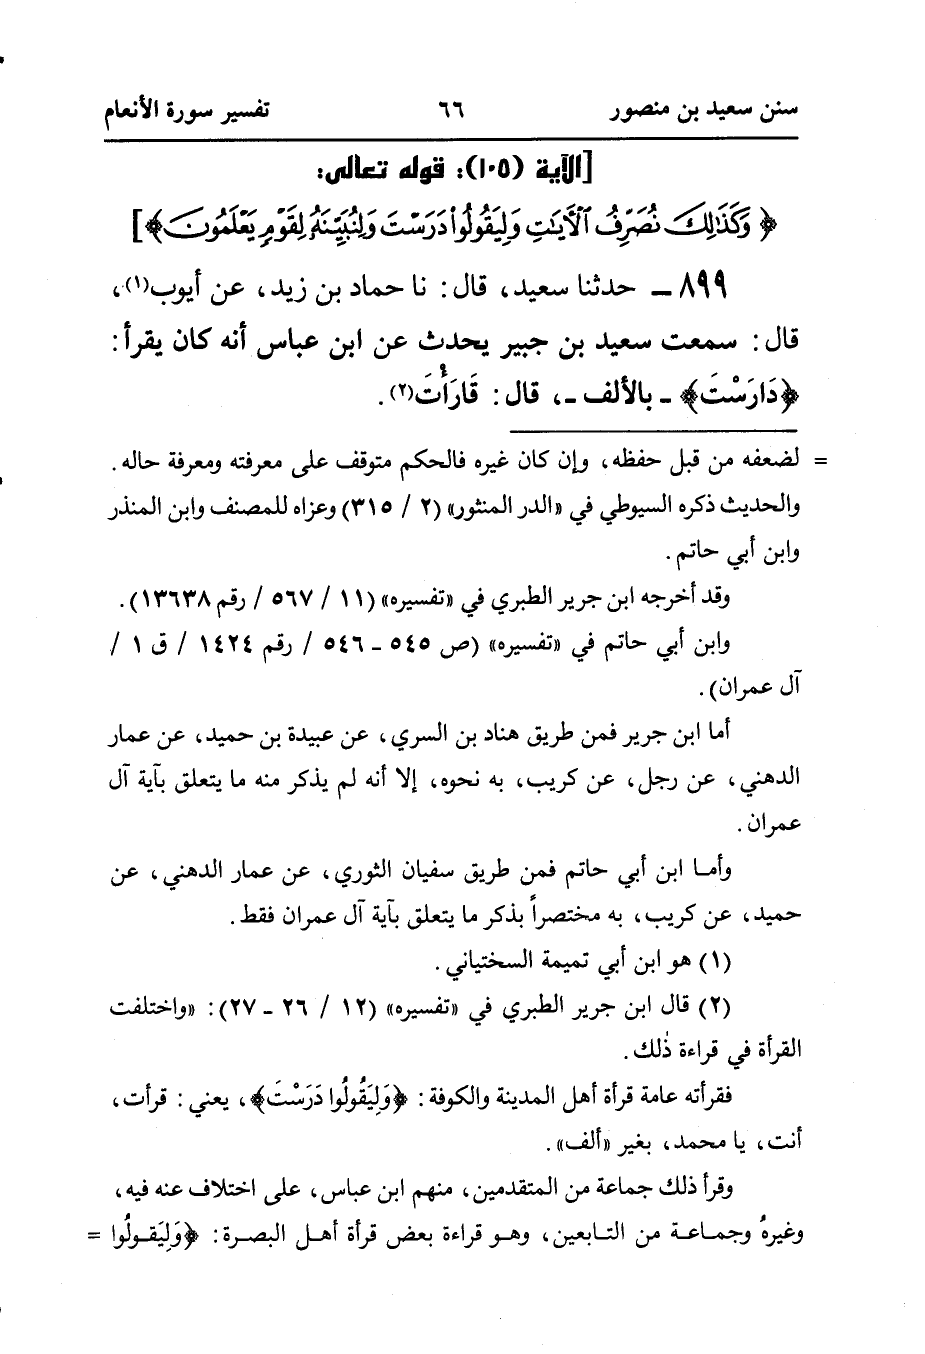 سنن سعيد بن منصور ٦٦ تفسير سورة الأنعام
[الآية (١٠٥): قوله تعالى:
﴿ وَكَذَٰلِكَ نُصَرِّفُ ٱلْآيَٰتِ وَلِيَقُولُوا۟ دَرَسْتَ وَلِنُبَيِّنَهُۥ لِقَوْمٍ يَعْلَمُونَ ﴾]
٨٩٩ ـ حدثنا سعيد، قال: نا حماد بن زيد، عن أيوب(١)،
قال: سمعت سعيد بن جبير يحدث عن ابن عباس أنه كان يقرأ:
﴿دَارَسْتَ﴾ ـ بالألف ـ، قال: قَارَأْتَ(٢).
= لضعفه من قبل حفظه، وإن كان غيره فالحكم متوقف على معرفته ومعرفة حاله.
والحديث ذكره السيوطي في «الدر المنثور» (٢ / ٣١٥) وعزاه للمصنف وابن المنذر
وابن أبي حاتم.
وقد أخرجه ابن جرير الطبري في «تفسيره» (١١ / ٥٦٧ / رقم ١٣٦٣٨).
وابن أبي حاتم في «تفسيره» (ص ٥٤٥ ـ ٥٤٦ / رقم ١٤٢٤ / ق ١ /
آل عمران).
أما ابن جرير فمن طريق هناد بن السري، عن عبيدة بن حميد، عن عمار
الدهني، عن رجل، عن كريب، به نحوه، إلا أنه لم يذكر منه ما يتعلق بآية آل
عمران.
وأما ابن أبي حاتم فمن طريق سفيان الثوري، عن عمار الدهني، عن
حميد، عن كريب، به مختصراً بذكر ما يتعلق بآية آل عمران فقط.
(١) هو ابن أبي تميمة السختياني.
(٢) قال ابن جرير الطبري في «تفسيره» (١٢ / ٢٦ ـ ٢٧): «واختلفت
القرأة في قراءة ذٰلك.
فقرأته عامة قرأة أهل المدينة والكوفة: ﴿وَلِيَقُولُوا دَرَسْتَ﴾، يعني: قرأت،
أنت، يا محمد، بغير «ألف».
وقرأ ذلك جماعة من المتقدمين، منهم ابن عباس، على اختلاف عنه فيه،
وغيرهُ وجماعة من التابعين، وهو قراءة بعض قرأة أهل البصرة: ﴿وَلِيَقُولُوا =